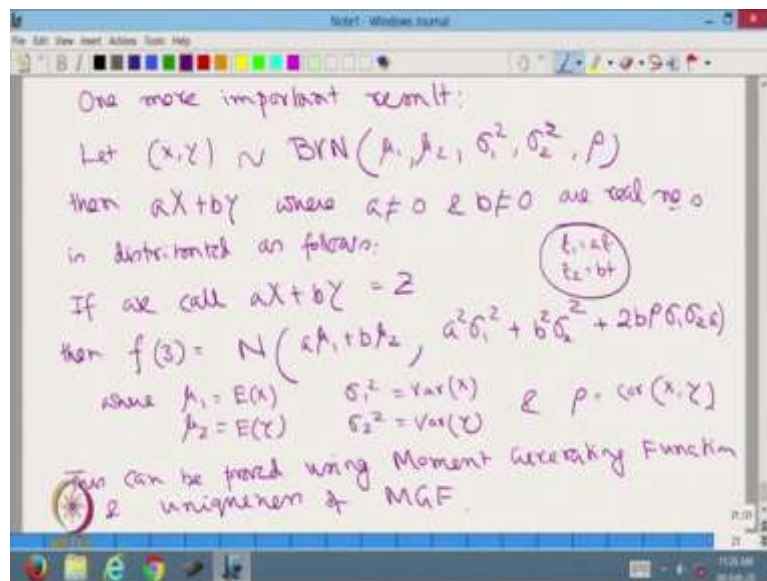 Note1 - Windows Journal
File Edit View Insert Actions Tools Help
One more important result:
Let (X,Y) ~ BVN(μ₁, μ₂, σ₁², σ₂², ρ)
then aX+bY where a≠0 & b≠0 are real no s
is distributed as follows:
t₁=at
t₂=bt
If we call aX+bY = Z
then f(z) = N(aμ₁+bμ₂, a²σ₁² + b²σ₂² + 2bρσ₁σ₂a)
where μ₁ = E(X) σ₁² = Var(X) & ρ = Cor(X,Y)
μ₂ = E(Y) σ₂² = Var(Y)
This can be proved using Moment Generating Function
& uniqueness of MGF.
21/21
21
11:26 AM